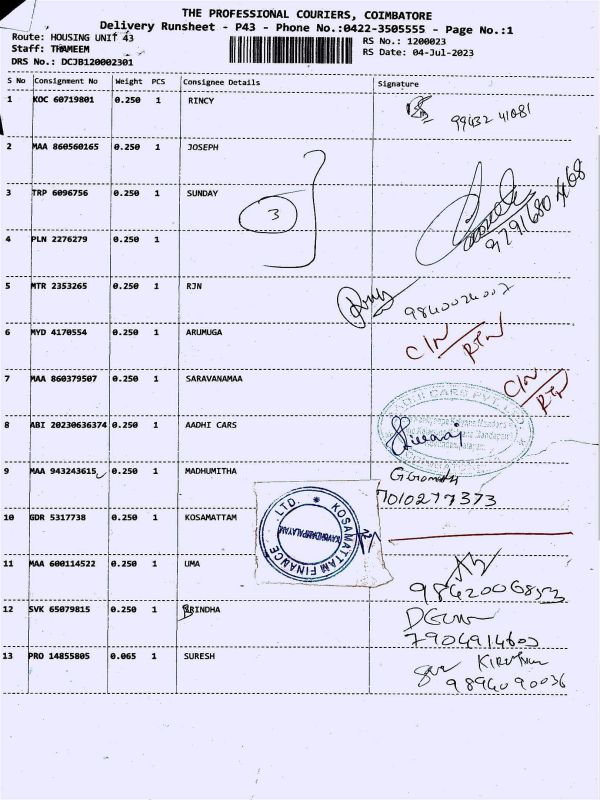 THE PROFESSIONAL COURIERS, COIMBATORE
Delivery Runsheet - P43 - Phone No.:0422-3505555 - Page No.:1
Route: HOUSING UNIT 43
Staff: THAMEEM
DRS No.: DCJB120002301
RS No.: 1200023
RS Date: 04-Jul-2023
S No Consignment No Weight PCS Consignee Details Signature
1 KOC 60719801 0.250 1 RINCY 99432 41081
2 MAA 860560165 0.250 1 JOSEPH
3 TRP 6096756 0.250 1 SUNDAY 3 9791680468
4 PLN 2276279 0.250 1
5 MTR 2353265 0.250 1 RJN 9840024007
6 MYD 4170554 0.250 1 ARUMUGA C/N RTN
7 MAA 860379507 0.250 1 SARAVANAMAA C/N RTN
8 ABI 20230636374 0.250 1 AADHI CARS
9 MAA 943243615 0.250 1 MADHUMITHA 7010277373
10 GDR 5317738 0.250 1 KOSAMATTAM KOSAMATTAM FINANCE LTD. KAVUNDAMPALAYAM
11 MAA 600114522 0.250 1 UMA
12 SVK 65079815 0.250 1 BRINDHA 7904914602
13 PRO 14855805 0.065 1 SURESH 9894090036